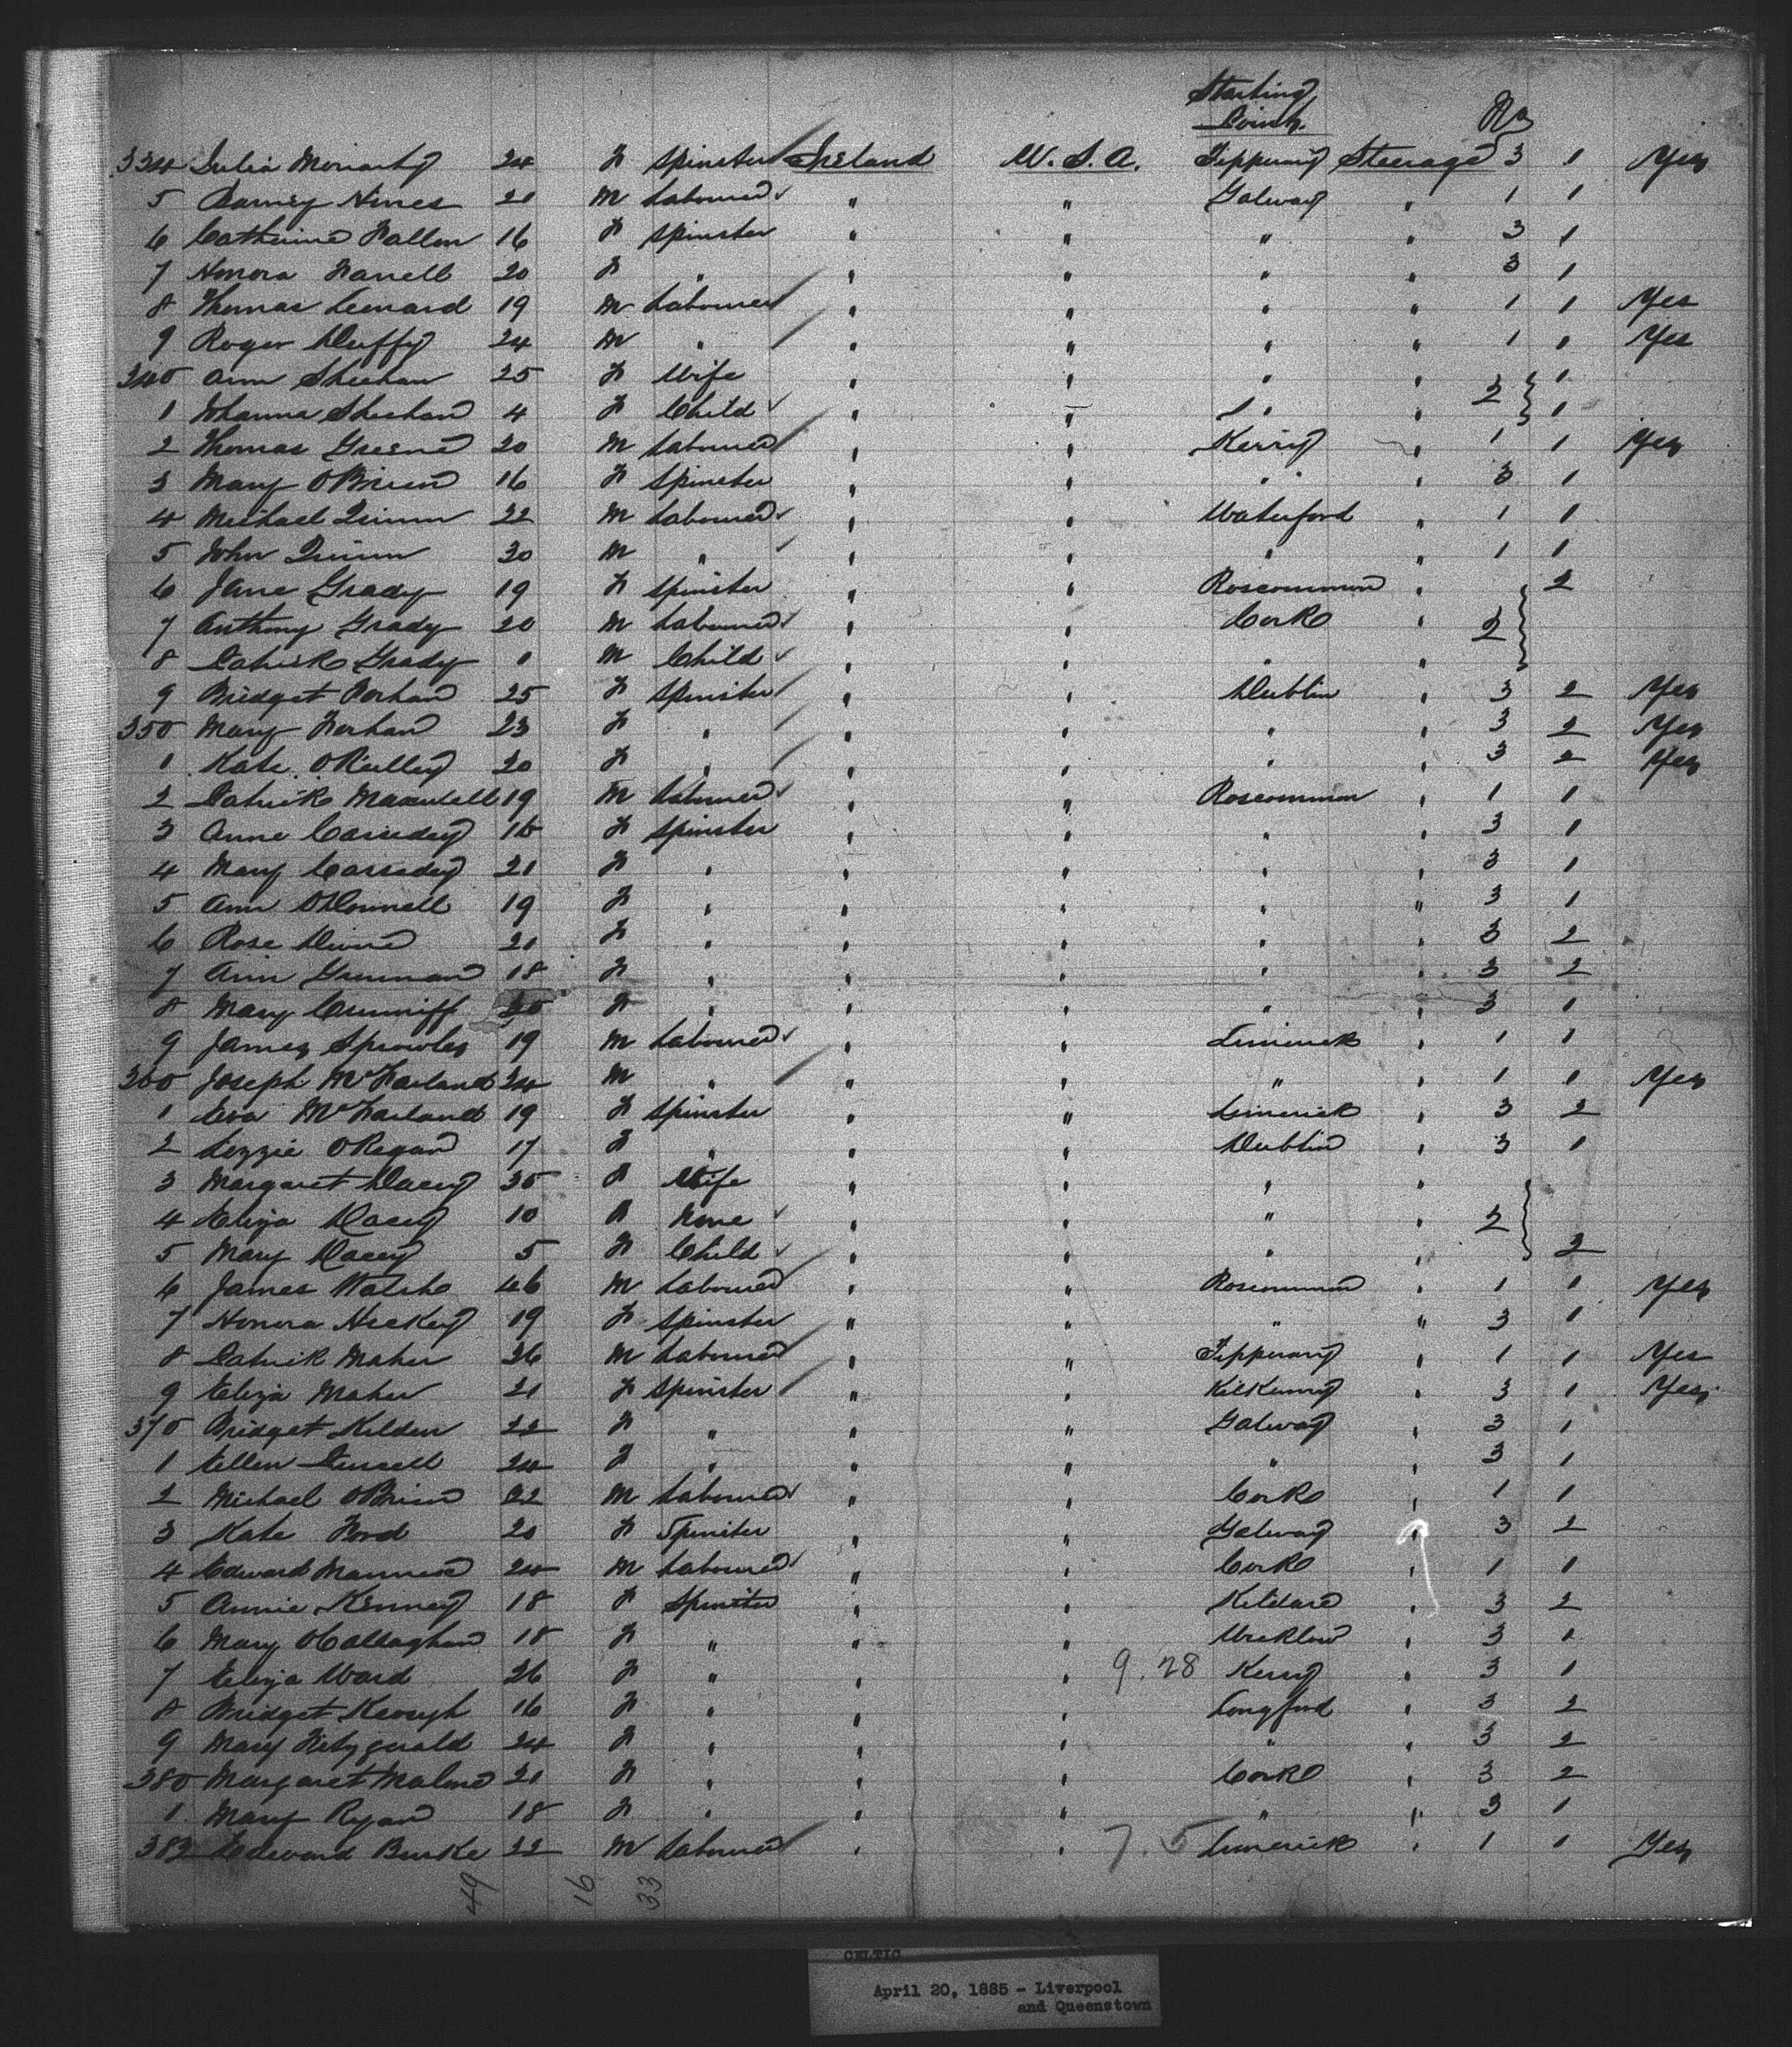 Starting
Point. No
334 Julia Moriarty 24 F Spinster Ireland U.S.A. Tipperary Steerage 3 1 Yes
5 Barney Hines 21 M Labourer " " Galway " 1 1
6 Catherine Fallon 16 F Spinster " " " " 3 1
7 Honora Farrell 20 F " " " " " 3 1
8 Thomas Leonard 19 M Labourer " " " " 1 1 Yes
9 Roger Duffy 24 M " " " " " 1 1 Yes
340 Ann Sheehan 25 F Wife " " " " 2 1
1 Johanna Sheehan 4 F Child " " " " 1
2 Thomas Greene 20 M Labourer " " Kerry " 1 1 Yes
3 Mary OBrien 16 F Spinster " " " " 3 1
4 Michael Quinn 22 M Labourer " " Waterford " 1 1
5 John Quinn 30 M " " " " " 1 1
6 Jane Grady 19 F Spinster " " Roscommon " 2
7 Anthony Grady 20 M Labourer " " Cork 2
8 Patrick Grady 1 M Child " " " "
9 Bridget Forhan 25 F Spinster " " Dublin " 3 2 Yes
350 Mary Forhan 23 F " " " " " 3 2 Yes
1 Kate OReilley 20 F " " " " " 3 2 Yes
2 Patrick 19 M Labourer " " Roscommon " 1 1
3 Anne Cassedey 16 F Spinster " " " " 3 1
4 Mary Cassedey 21 F " " " " " 3 1
5 Ann ODonnell 19 F " " " " " 3 1
6 Rose 21 F " " " " " 3 2
7 Ann 18 F " " " " " 3 2
8 Mary Cunniff 20 F " " " " " 3 1
9 James Sprowles 19 M Labourer " " Limerick " 1 1
360 Joseph McFarland 24 M " " " " " 1 1 Yes
1 Eva McFarland 19 F Spinster " " Limerick " 3 2
2 Lizzie ORegan 17 F " " " Dublin " 3 1
3 Margaret Dacey 35 F Wife " " " "
4 Eliza Dacey 10 F None " " " " 2
5 Mary Dacey 5 F Child " " " " 2
6 James Walsh 46 M Labourer " " Roscommon " 1 1 Yes
7 Honora Hickey 19 F Spinster " " " " 3 1
8 Patrick Maher 26 M Labourer " " Tipperary " 1 1 Yes
9 Eliza Maher 21 F Spinster " " Kilkenny " 3 1 Yes
370 Bridget Kilden 22 F " " " Galway " 3 1
1 Ellen Purcell 24 F " " " " " 3 1
2 Michael OBrien 22 M Labourer " " Cork " 1 1
3 Kate Ford 20 F Spinster " " Galway " 3 2
4 Edward 24 M Labourer " " Cork " 1 1
5 Annie Kenney 18 F Spinster " " Kildare " 3 2
6 Mary OCallaghan 18 F " " " Wicklow " 3 1
7 Eliza Ward 26 F " " " 9.28 Kerry " 3 1
8 Bridget Keough 16 F " " " Longford " 3 2
9 Mary Fitzgerald 24 F " " " " " 3 2
380 Margaret Malone 21 F " " " Cork " 3 2
1 Mary Ryan 18 F " " " " " 3 1
382 Edward Burke 22 M Labourer " " 7.5 Limerick " 1 1 Yes
49 16 33
CELTIC
April 20, 1885 - Liverpool
and Queenstown